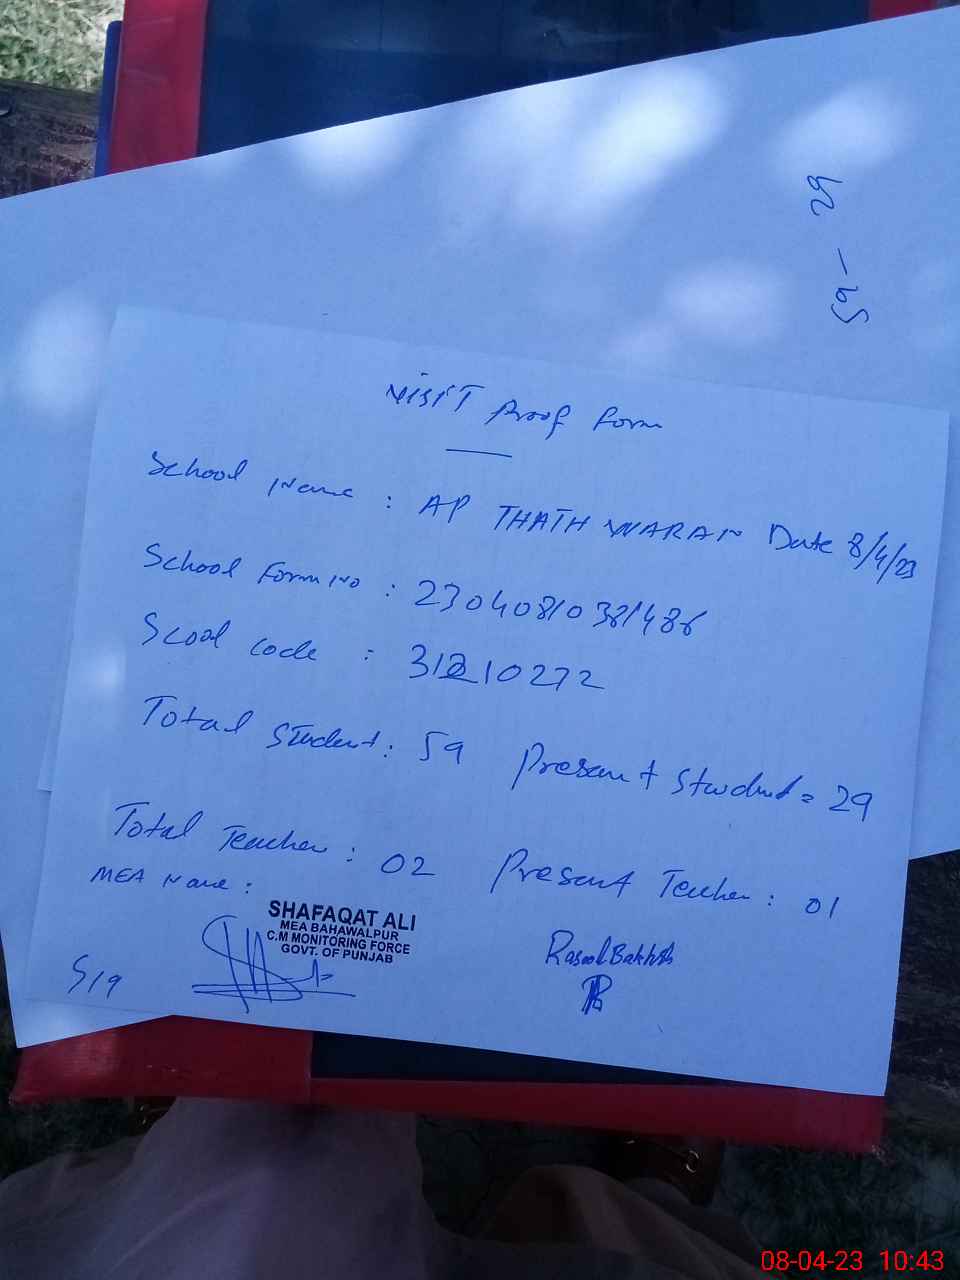 29 - 59
VISIT Proof Form
School Name : AP THATH WARAN Date 8/4/23
School Form No : 23040810381486
Scool code : 31210272
Total Student : 59 Present Student = 29
Total Teacher : 02 Present Teacher : 01
MEA Name :
SHAFAQAT ALI
MEA BAHAWALPUR
C.M MONITORING FORCE
GOVT. OF PUNJAB
Rasool Bakhsh
08-04-23 10:43